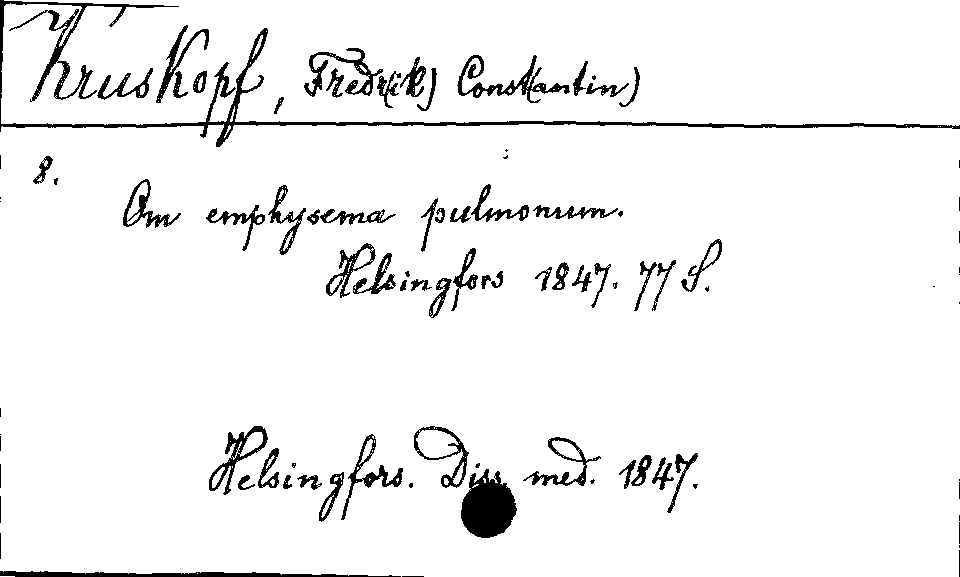 Kruskopf, Fredr(ik) Const(antin)
8.
Om emphysema pulmonum.
Helsingfors 1847. 77 S.
Helsingfors. Diss. med. 1847.